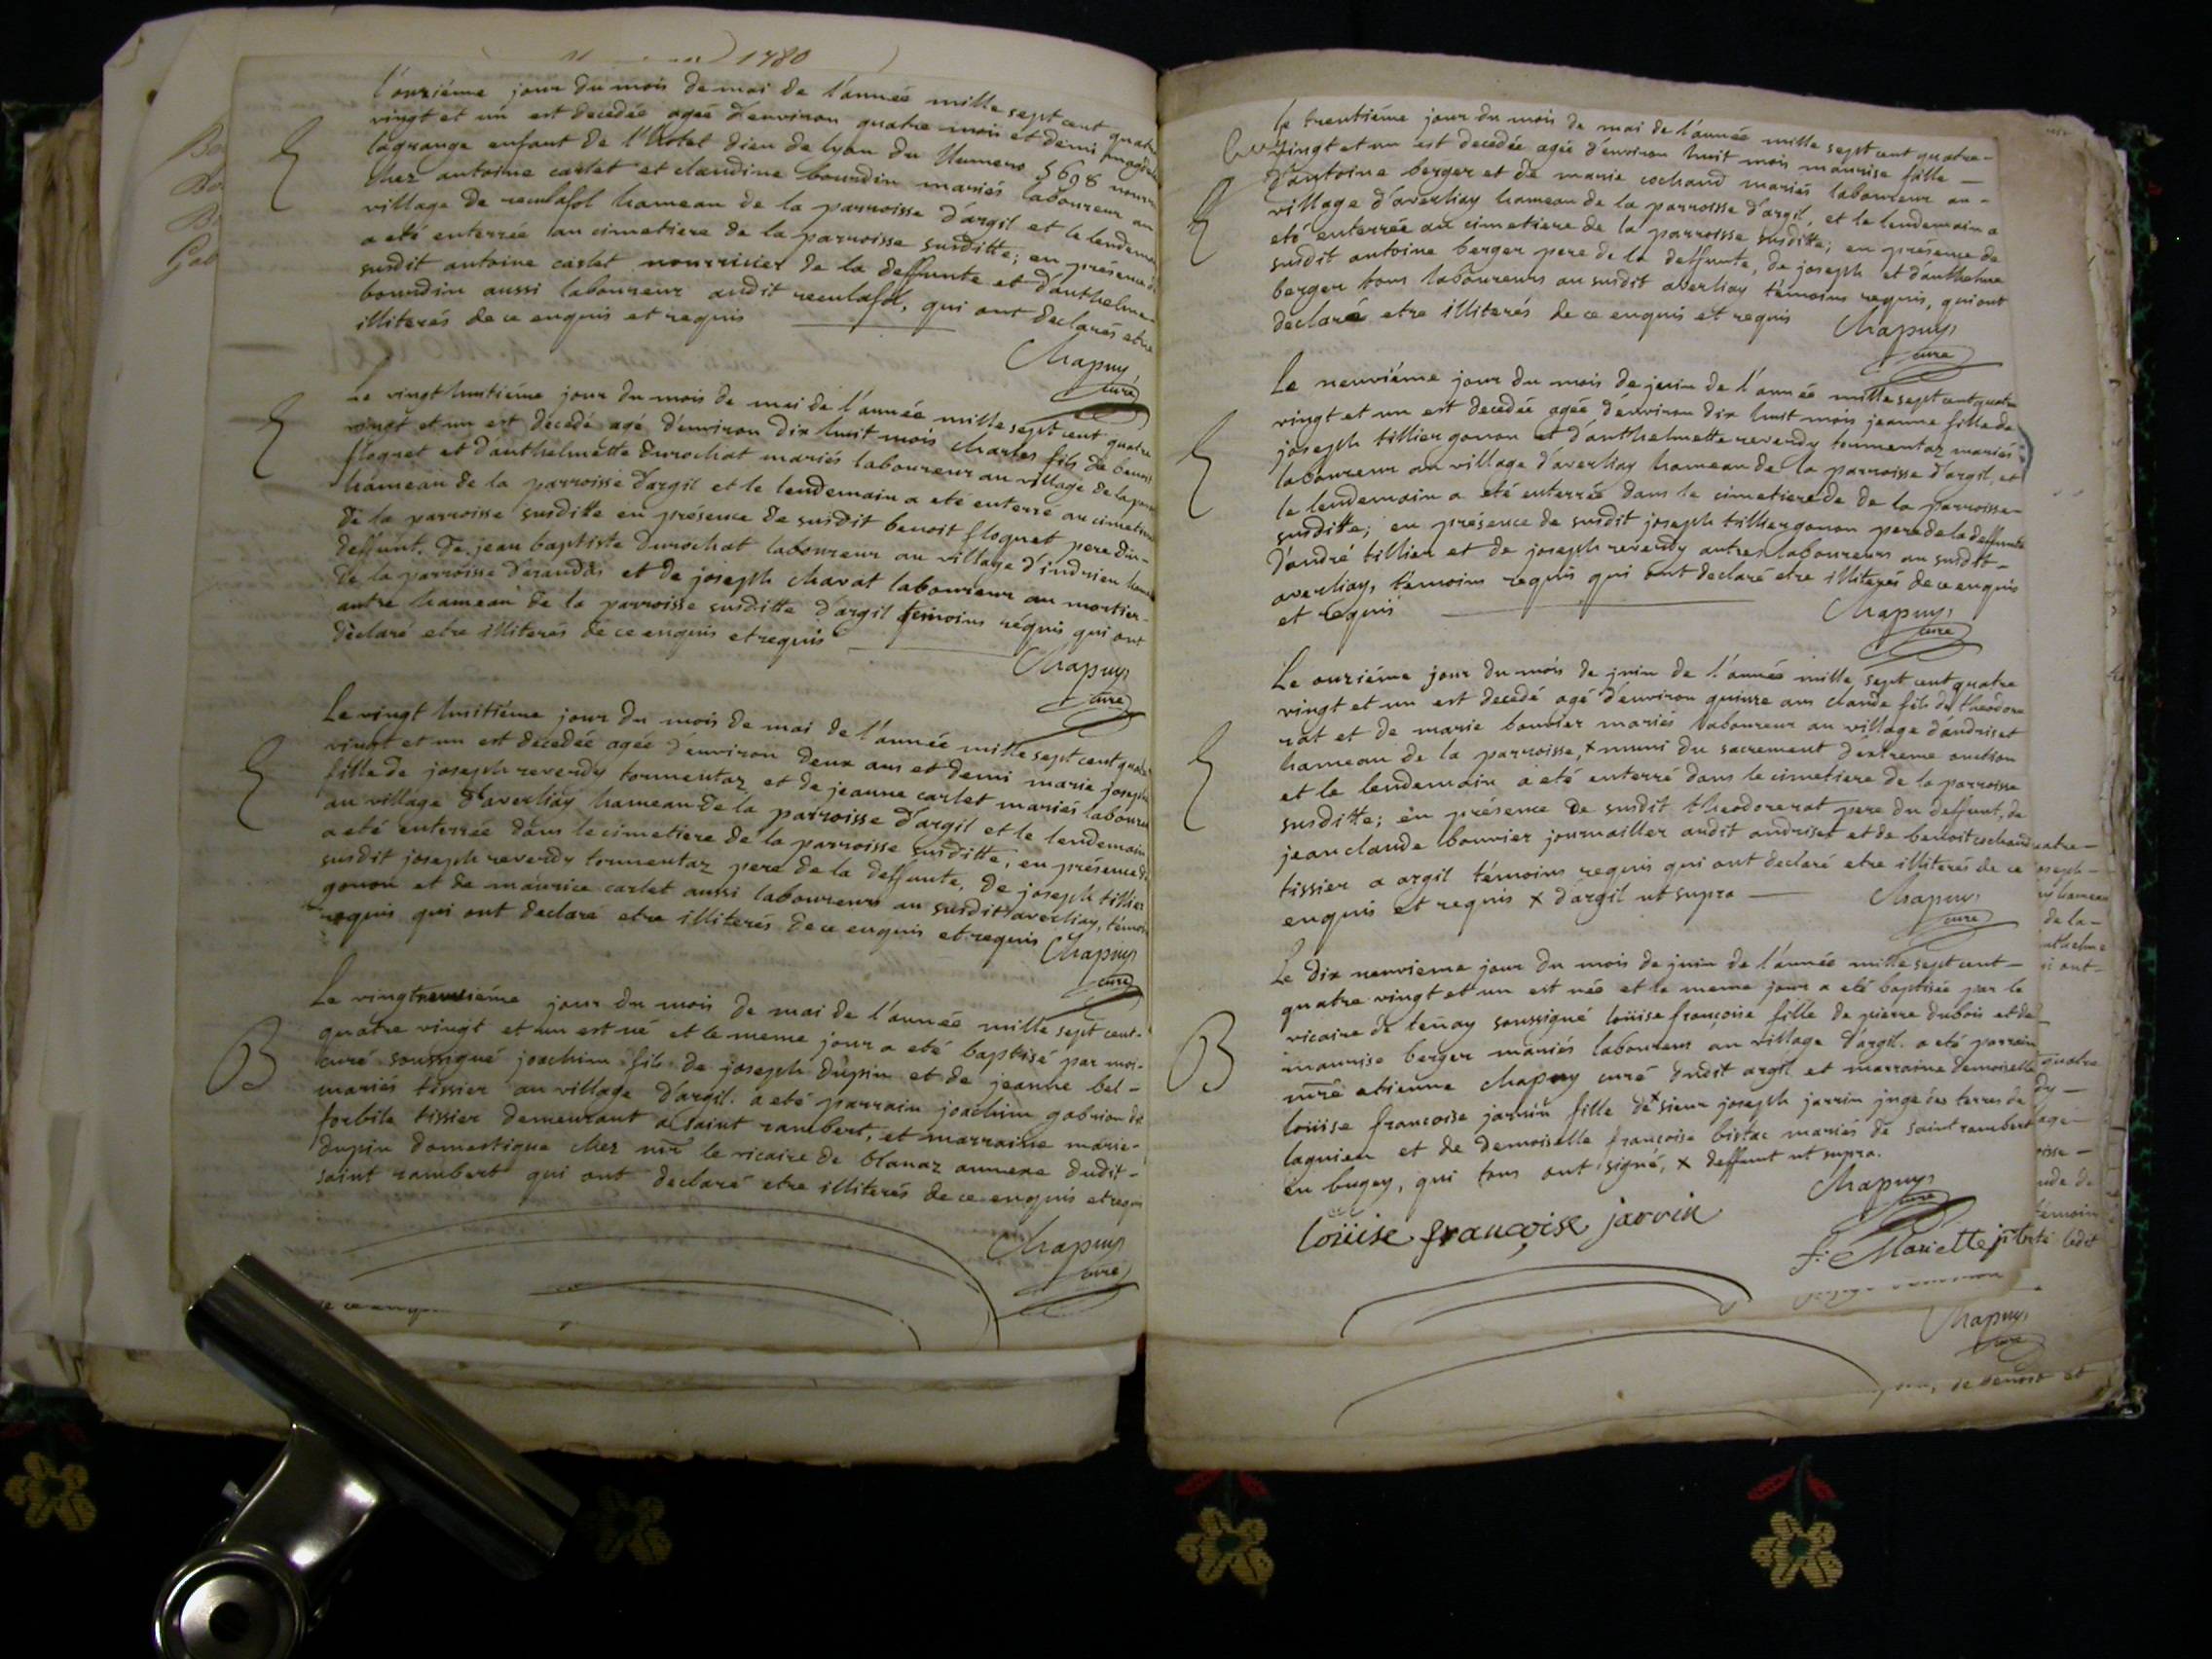 1780
l'onziéme jour du mois de mai de l'année mille sept cent quatre
vingt et un est decedée agée d'environ quatre mois et demi
lagrange enfant de l'hotel dieu de lyon du Numero 5698
chez antoine carlet et claudine bourdin mariés laboureur au
village de reculafol hameau de la parroisse d'argil et le lendemain
a eté enterrée au cimetiere de la parroisse susditte; en présence de
susdit antoine carlet nourricier de la deffunte et d'anthelme
bourdin aussi laboureur audit reculafol, qui ont declarés etre
illiterés de ce enquis et requis
Chapuy,
curé
Le vingt huitiéme jour du mois de mai de l'année mille sept cent quatre
vingt et un est decedé agé d'environ dix huit mois charles fils de benoit
floquet et d'anthelmette durochat mariés laboureur au village de
hameau de la parroisse d'argil et le lendemain a eté enterré au cimetiere
de la parroisse susditte en présence de susdit benoit floquet pere du
deffunt, de jean baptiste durochat laboureur au village d'indrieu
de la parroisse d'arandas et de joseph charat laboureur au mortier
autre hameau de la parroisse susditte d'argil temoins requis qui ont
declaré etre illiterés de ce enquis et requis
Chapuy,
curé
Le vingt huitiéme jour du mois de mai de l'année mille sept cent quatre
vingt et un est decedée agée d'environ deux ans et demi marie joseph
fille de joseph reverdy tormentaz et de jeanne carlet mariés laboureur
au village d'averliay hameau de la parroisse d'argil et le lendemain
a eté enterrée dans le cimetiere de la parroisse susditte; en présence de
susdit joseph reverdy tormentaz pere de la deffunte, de joseph tillier
gonon et de maurice carlet aussi laboureurs au susdit averliay, témoins
requis qui ont declaré etre illiterés de ce enquis et requis
Chapuy
curé
B
Le vingtneuviéme jour du mois de mai de l'année mille sept cent
quatre vingt et un est né et le meme jour a eté baptisé par moi
curé soussigné joachim fils de joseph dupin et de jeanne bel-
mariés tissier au village d'argil. a eté parrain joachim gabrion dit
forbile tissier demeurant a saint rambert, et marraine marie
dupin domestique chez mr le vicaire de blanaz annexe dudit
saint rambert qui ont declaré etre illiterés de ce enquis et requis
Chapuy
curé
le trentiéme jour du mois de mai de l'année mille sept cent quatre-
vingt et un est decedée agée d'environ huit mois maurise fille
d'antoine berger et de marie cochand mariés laboureur au
village d'averliay hameau de la parroisse d'argil, et le lendemain a
eté enterrée au cimetiere de la parroisse susditte; en présence de
susdit antoine berger pere de la deffunte, de joseph et d'anthelme
berger tous laboureurs au susdit averliay témoins requis, qui ont
declaré etre illiterés de ce enquis et requis
Chapuy,
curé
Le neuviéme jour du mois de juin de l'année mille sept cent quatre
vingt et un est decedée agée d'environ dix huit mois jeanne fille de
joseph tillier gonon et d'anthelmette reverdy tormentaz mariés
laboureur au village d'averliay hameau de la parroisse d'argil, et
le lendemain a eté enterrée dans le cimetiere de de la parroisse
susditte; en présence de susdit joseph tillier gonon pere de la deffunte
d'andré tillier et de joseph reverdy autres laboureurs au susdit
averliay, témoins requis qui ont declaré etre illiterés de ce enquis
et requis
Chapuy,
curé
Le onziéme jour du mois de juin de l'année mille sept cent quatre
vingt et un est decedé agé d'environ quinze ans claude fils de theodore
rat et de marie bouvier mariés laboureur au village d'andriset
hameau de la parroisse, x muni du sacrement d'extreme onction
et le lendemain a eté enterré dans le cimetiere de la parroisse
susditte; en présence de susdit theodore rat pere du deffunt, de
jean claude bouvier journailler audit andriset et de benoit cochand
tissier a argil témoins requis qui ont declaré etre illiterés de ce
enquis et requis x d'argil ut supra
Chapuy,
curé
B
Le dix neuvieme jour du mois de juin de l'année mille sept cent
quatre vingt et un est née et le meme jour a eté baptisée par le
vicaire de tenay soussigné loüise françoise fille de pierre dubois et de
maurise berger mariés laboureur au village d'argil. a eté parrain
mre etienne chapuy curé dudit argil et marraine demoiselle
loüise francoise jarrin fille de x sieur joseph jarrin juge des terres de
lagnieu et de demoiselle francoise bistac mariés de saint rambert
en bugey, qui tous ont signé, x deffunt ut supra.
Chapuy
curé
loüise françoise jarrin
f: Mariette
Chapuy,
curé